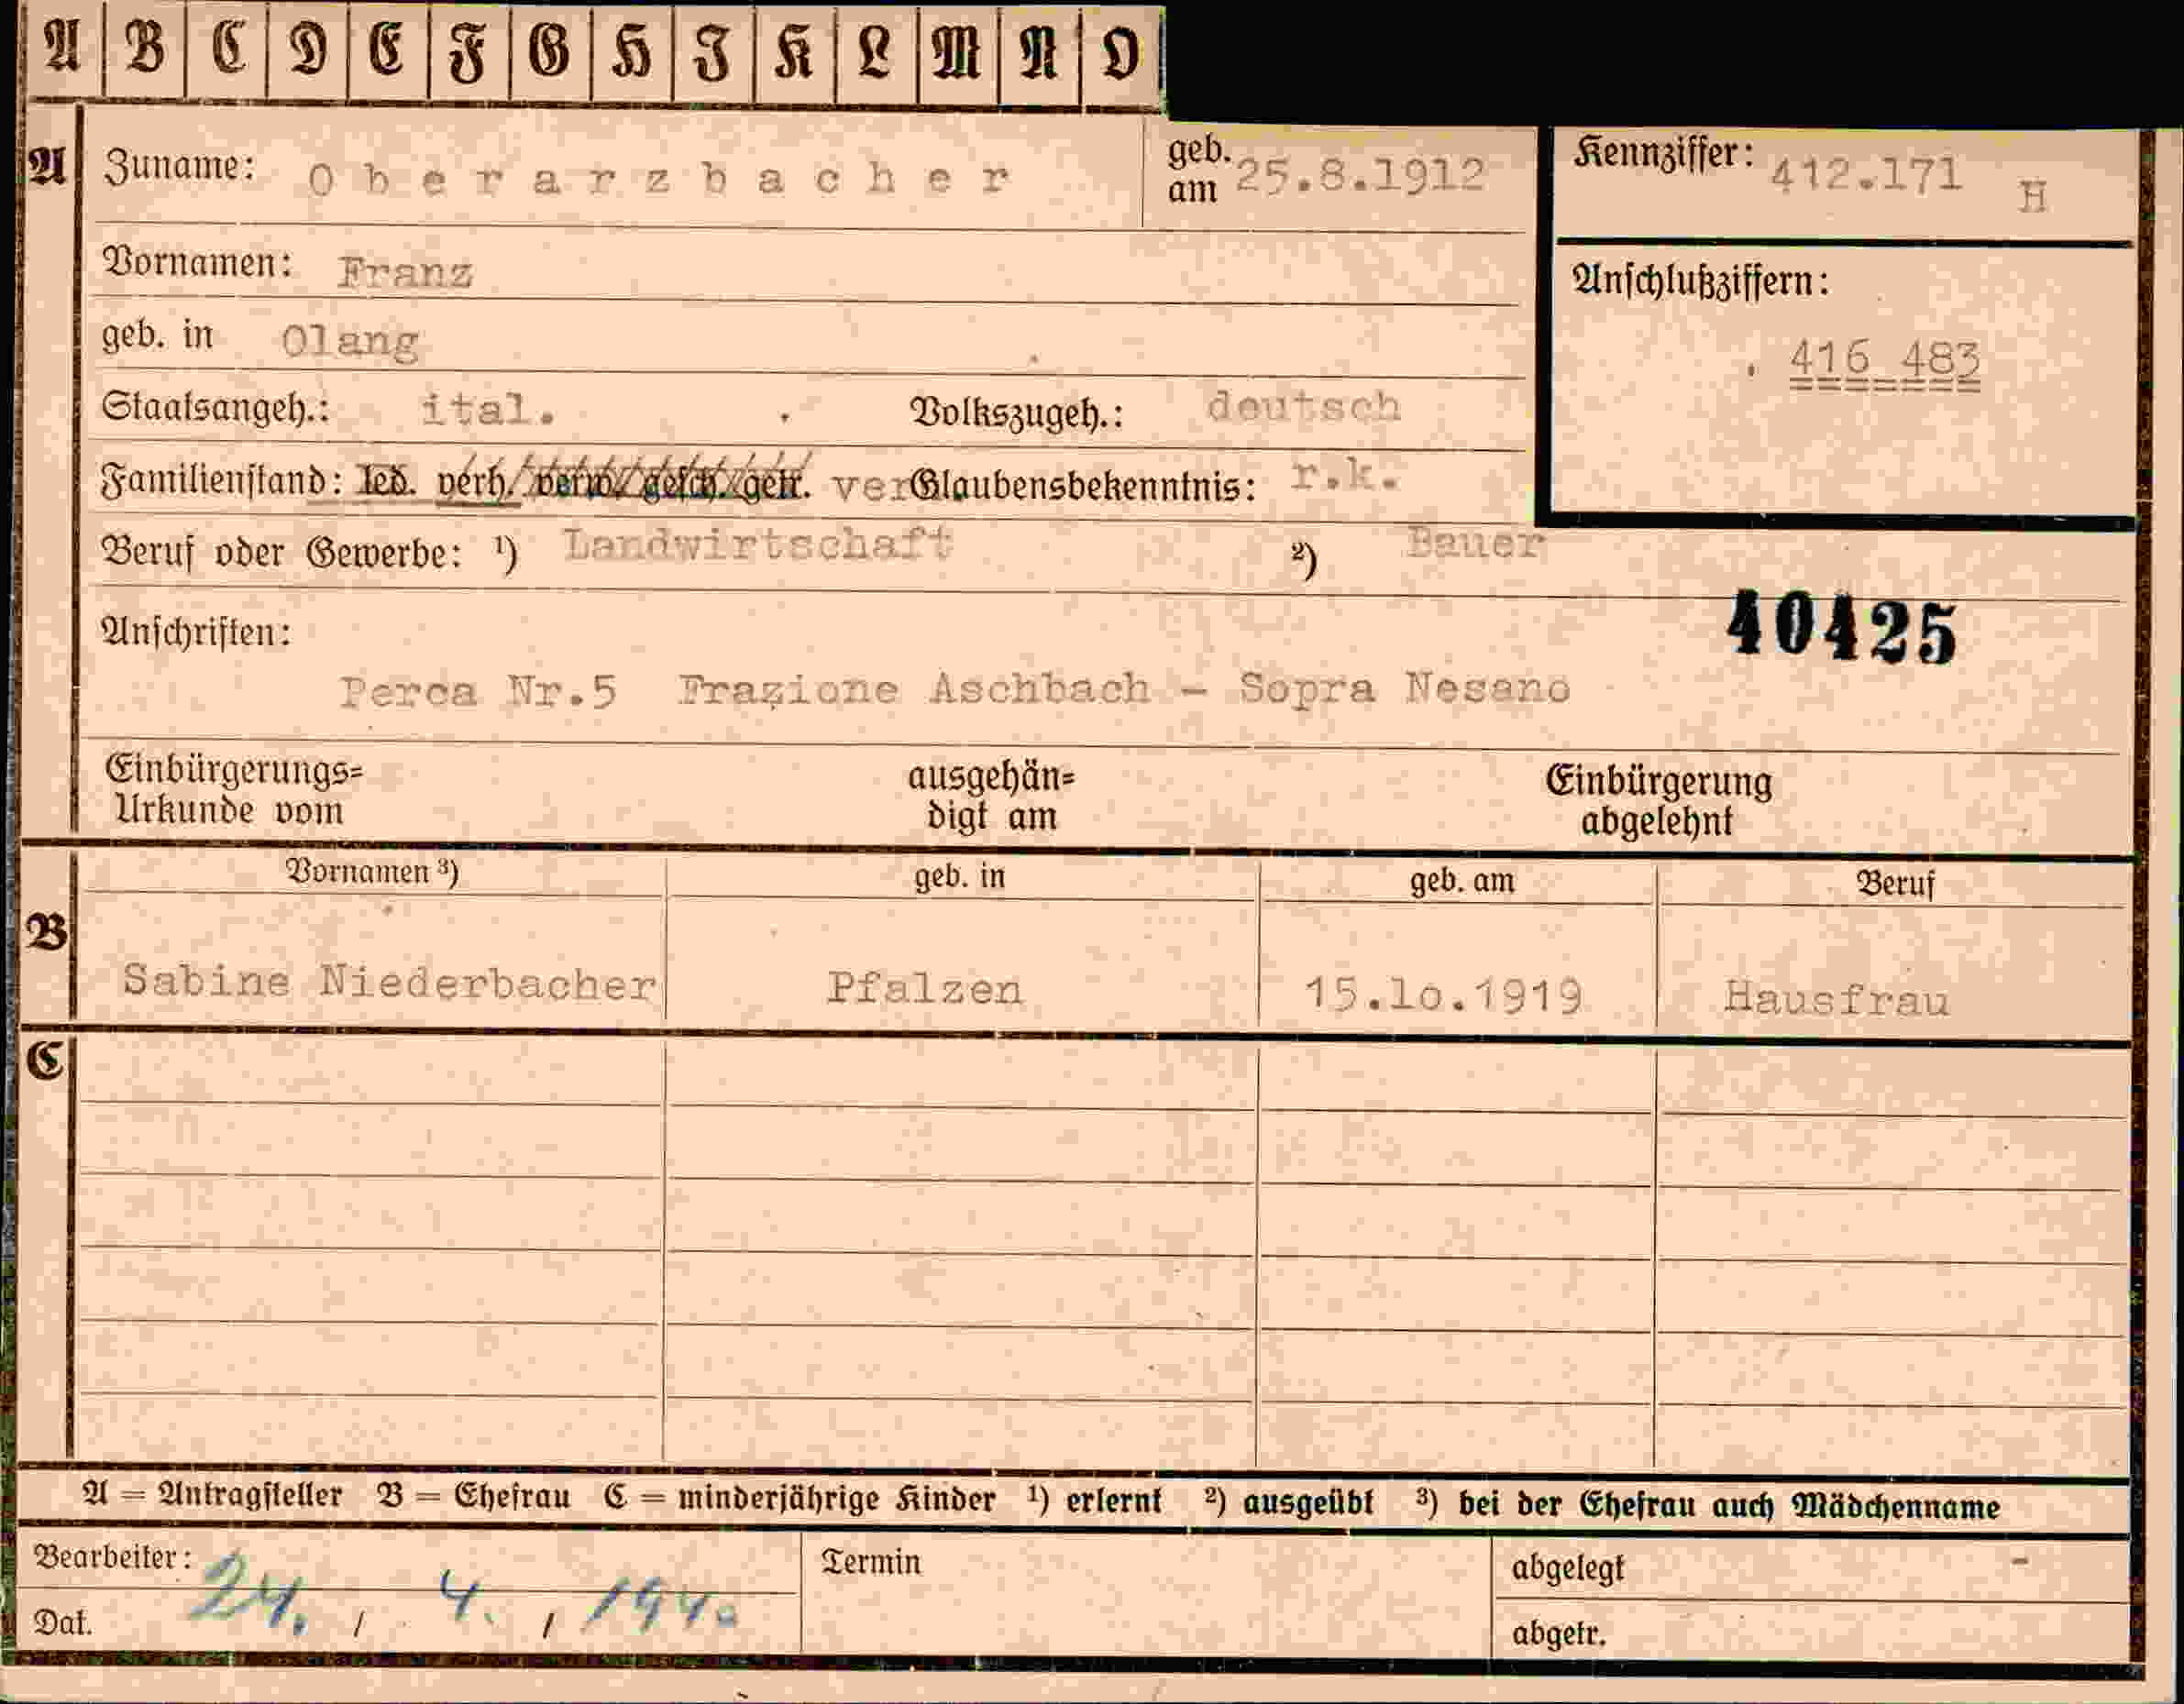 A B C D E F G H J K L M N O
A Zuname: Oberarzbacher geb. am 25.8.1912 Kennziffer: 412.171 H
Vornamen: Franz
Anschlußziffern:
geb. in Olang
416 483
Staatsangeh.: ital. Volkszugeh.: deutsch
Familienstand: led. verh. verw. gesch. getr. ver Glaubensbekenntnis: r.k.
Beruf oder Gewerbe: ¹) Landwirtschaft ²) Bauer
40425
Anschriften:
Perca Nr.5 Frazione Aschbach - Sopra Nesano
Einbürgerungs= ausgehän= Einbürgerung
Urkunde vom digt am abgelehnt
Vornamen ³) geb. in geb. am Beruf
B
Sabine Niederbacher Pfalzen 15.lo.1919 Hausfrau
C
A = Antragsteller B = Ehefrau C = minderjährige Kinder ¹) erlernt ²) ausgeübt ³) bei der Ehefrau auch Mädchenname
Bearbeiter: Termin abgelegt -
Dat. 24. / 4. / 1940 abgetr.